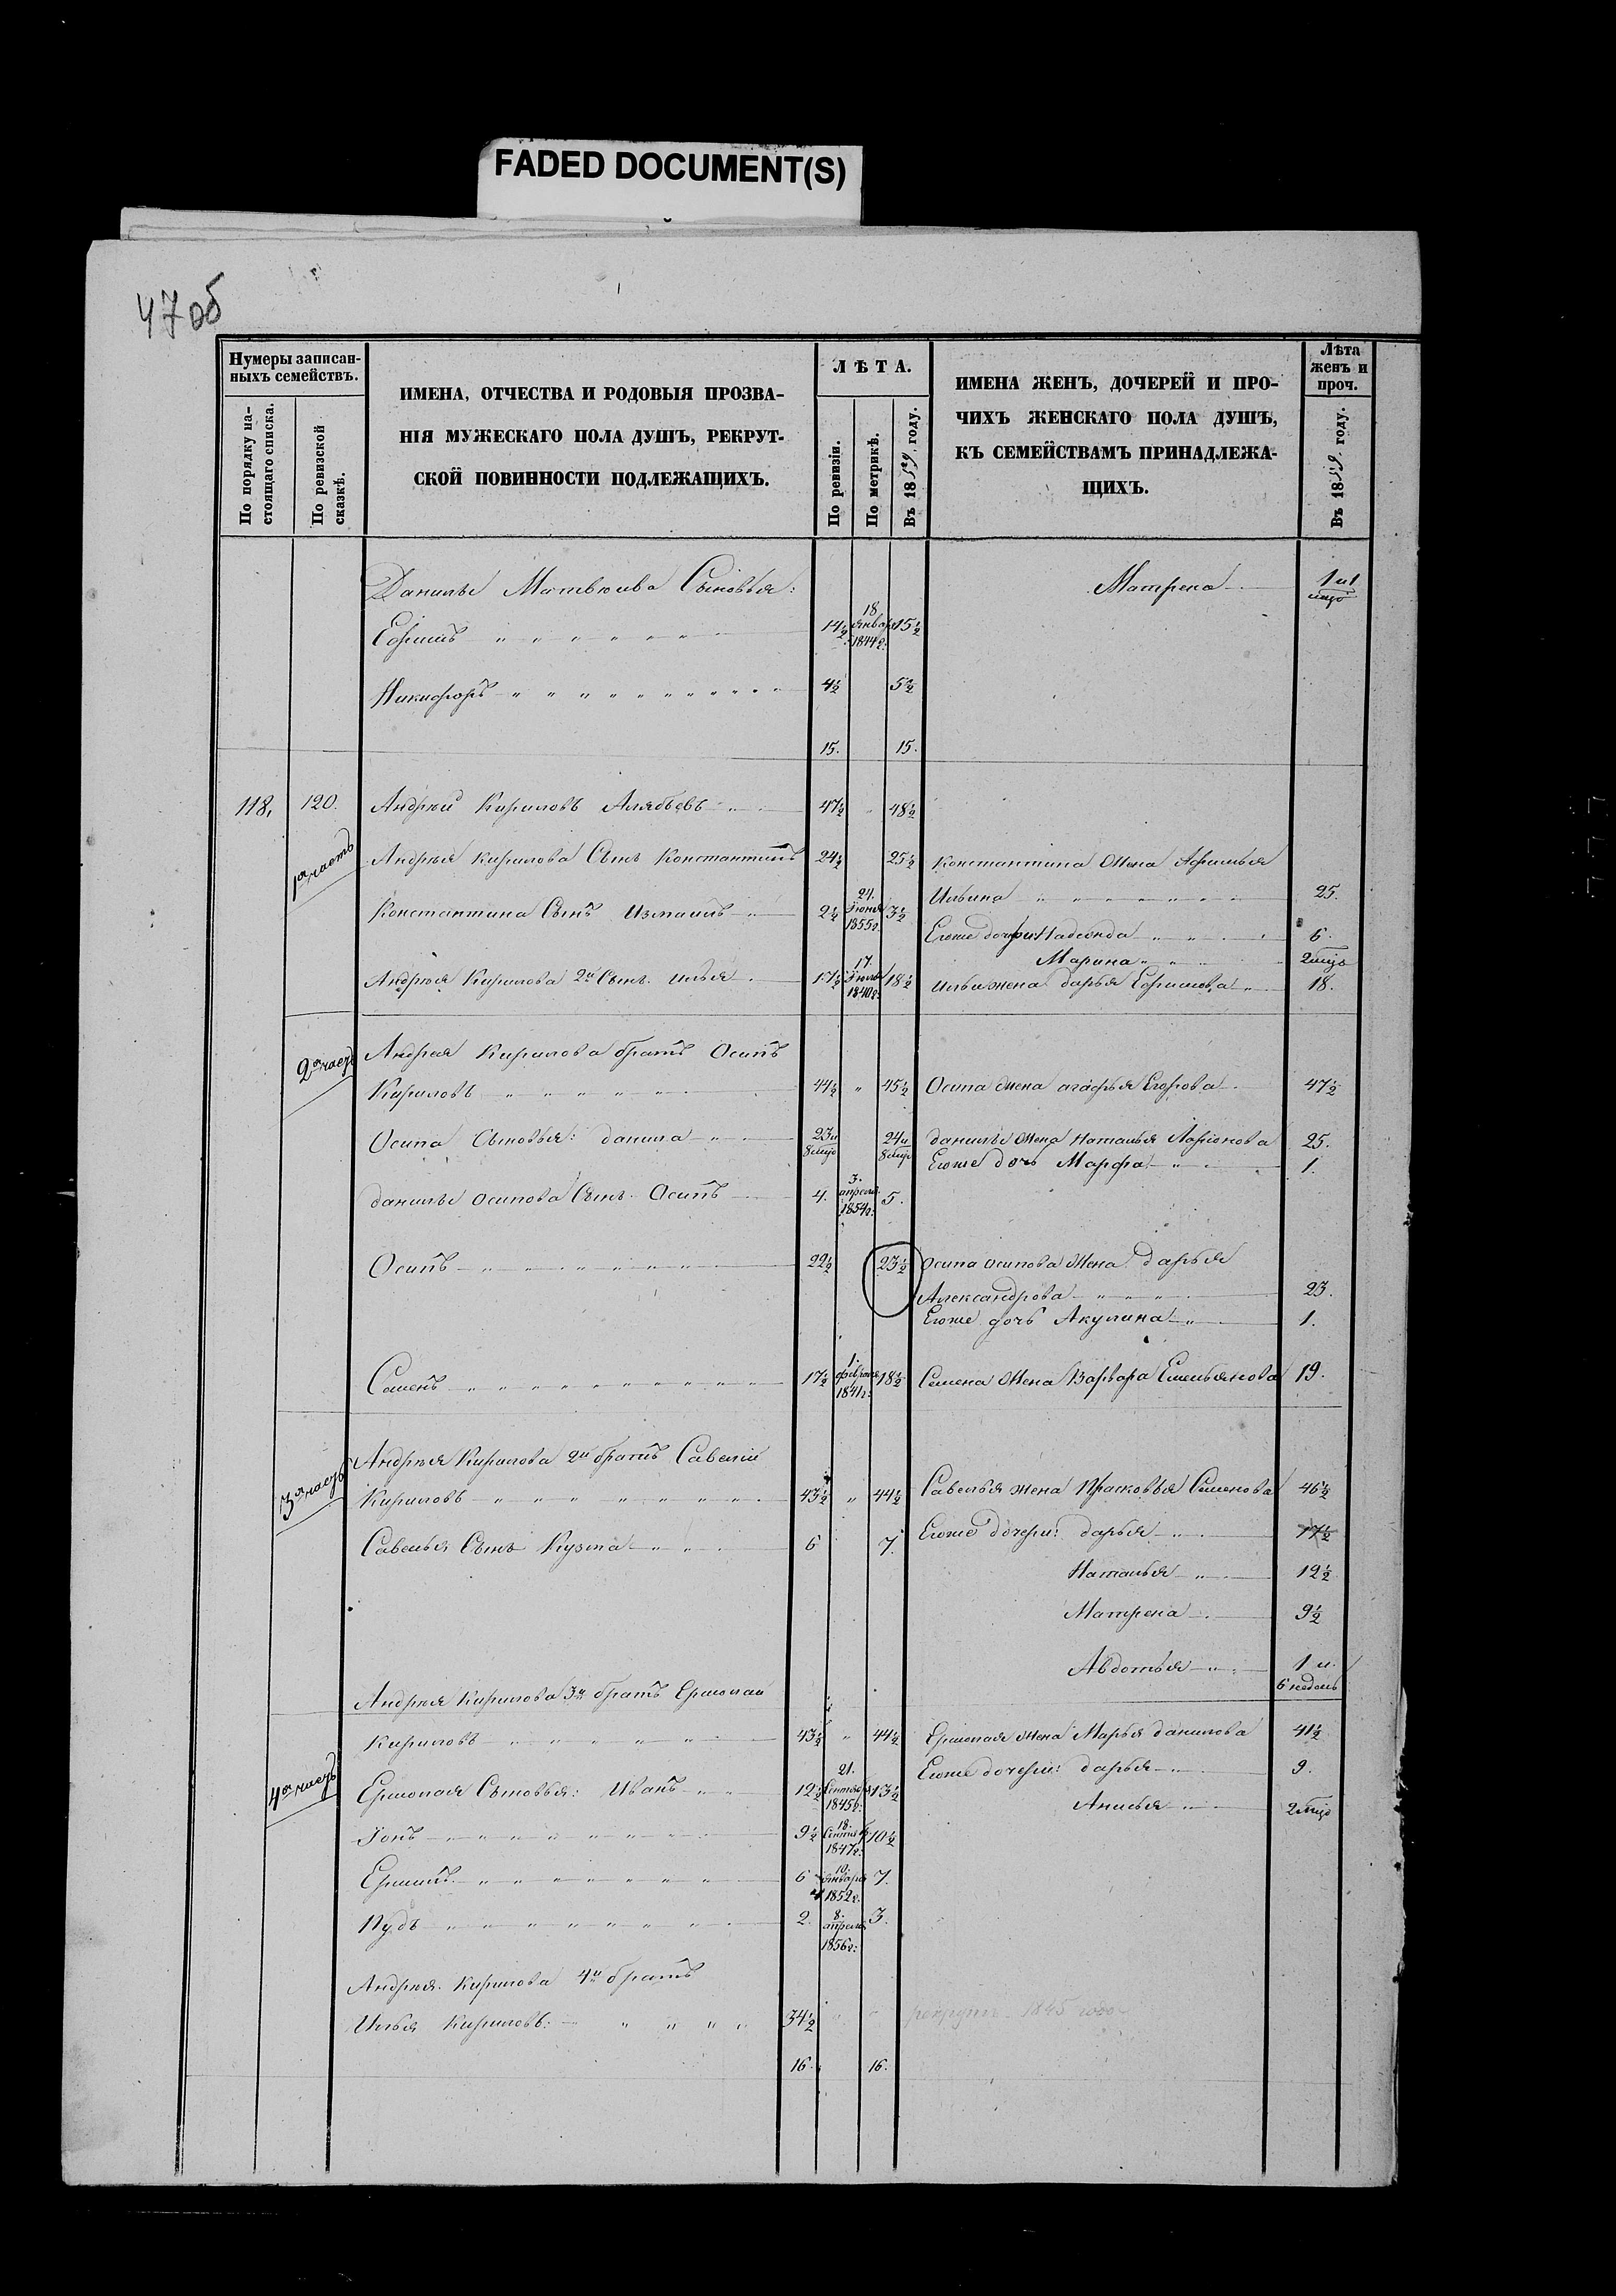 FADED DOCUMENT(S)
47 об
Нумеры записан-
ныхъ семействъ.
По порядку на-
стоящаго списка.
По ревизской
сказкѣ.
ИМЕНА, ОТЧЕСТВА И РОДОВЫЯ ПРОЗВА-
НІЯ МУЖЕСКАГО ПОЛА ДУШЪ, РЕКРУТ-
СКОЙ ПОВИННОСТИ ПОДЛЕЖАЩИХЪ.
ЛѢТА.
По ревизіи.
По метрикѣ.
Въ 1859 году.
ИМЕНА ЖЕНЪ, ДОЧЕРЕЙ И ПРО-
ЧИХЪ ЖЕНСКАГО ПОЛА ДУШЪ,
КЪ СЕМЕЙСТВАМЪ ПРИНАДЛЕЖА-
ЩИХЪ.
Лѣта
женъ и
проч.
Въ 1859 году.
Данилы Матвѣева Сыновья: Матрена 1 и 1 мѣцъ
Ефимъ 14½ 18 января 1844 г: 15½
Никифоръ 4½ 5½
15. 15.
118, 120. Андрей Кириловъ Алябьевъ 47½ 48½
1я часть
Андрея Кирилова Сынъ Константинъ 24½ 25½ Константина Жена Афимья
Ильина 25.
Константина Сынъ Измаилъ 2½ 24. Іюня 1855 г. 3½
Егоже дочери: Надежда 6.
Марина 2 мѣцъ
Андрея Кирилова 2й Сынъ Илья 17½ 17. Іюля 1840 г: 18½ Ильи жена дарья Ефимова 18.
2я часть
Андрея Кирилова братъ Осипъ
Кириловъ 44½ 45½ Осипа жена агафья Егорова 47½
Осипа Сыновья: данила 23 и 8 мѣцъ 24 и 8 мѣцъ данилы жена Наталья Ларіонова 25.
Егоже дочь Марфа 1.
данилы осипова Сынъ Осипъ 4. 3. апреля 1854 г: 5.
Осипъ 22½ 23½ осипа осипова Жена дарья
Александрова 23.
Егоже дочь Акулина 1.
Семенъ 17½ 1. февраля 1841 г: 18½ Семена Жена Варвара Емельянова 19.
3я часть
Андрея Кирилова 2й братъ Савелій
Кириловъ 43½ 44½ Савелья жена Прасковья Семенова 46½
Савелья Сынъ Кузма 6 7. Егоже дочери: дарья 17½
Наталья 12½
Матрена 9½
Авдотья 1 и
6 недель
Андрея Кирилова 3й братъ Ермолай
Кириловъ 43½ 44½ Ермолая Жена Марья данилова 41½
4я часть
Егоже дочери: дарья 9.
Ермолая Сыновья: Иванъ 12½ 21. Сентября 1845 г: 13½
Анисья 2 мѣцъ
Іонъ 9½ 18. Сентяб. 1847 г: 10½
Ермилъ 6 10. января 1852 г. 7.
Пудъ 2. 8. апреля 1856 г: 3.
Андрея Кирилова 4й братъ
Илья Кириловъ: 34½ рекрутъ 1845 года
16. 16.